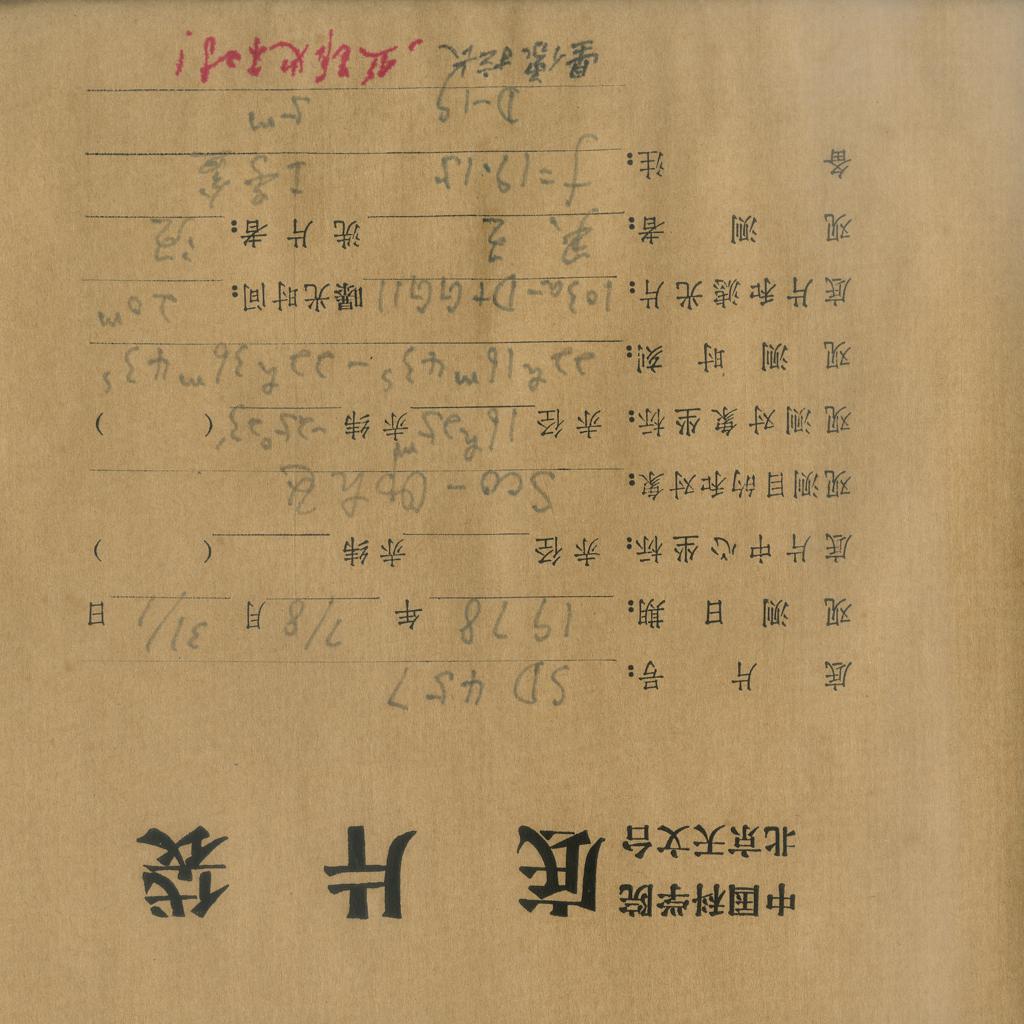 中国科学院
北京天文台
底片袋
底片号: SD 457
观测日期: 1978 年 7/8 月 31/1 日
底片中心坐标: 赤径 赤纬 ( )
观测目的和对象: Sco-Oph
观测对象坐标: 赤径 16h25m 赤纬 -25°23′ ( )
观测时刻: 22h16m43s - 22h36m43s
底片和滤光片: 103a-D+GG11 曝光时间: 20m
观测者: 洗片者:
备注: f=19.15
D-19 5m
星像拉长,